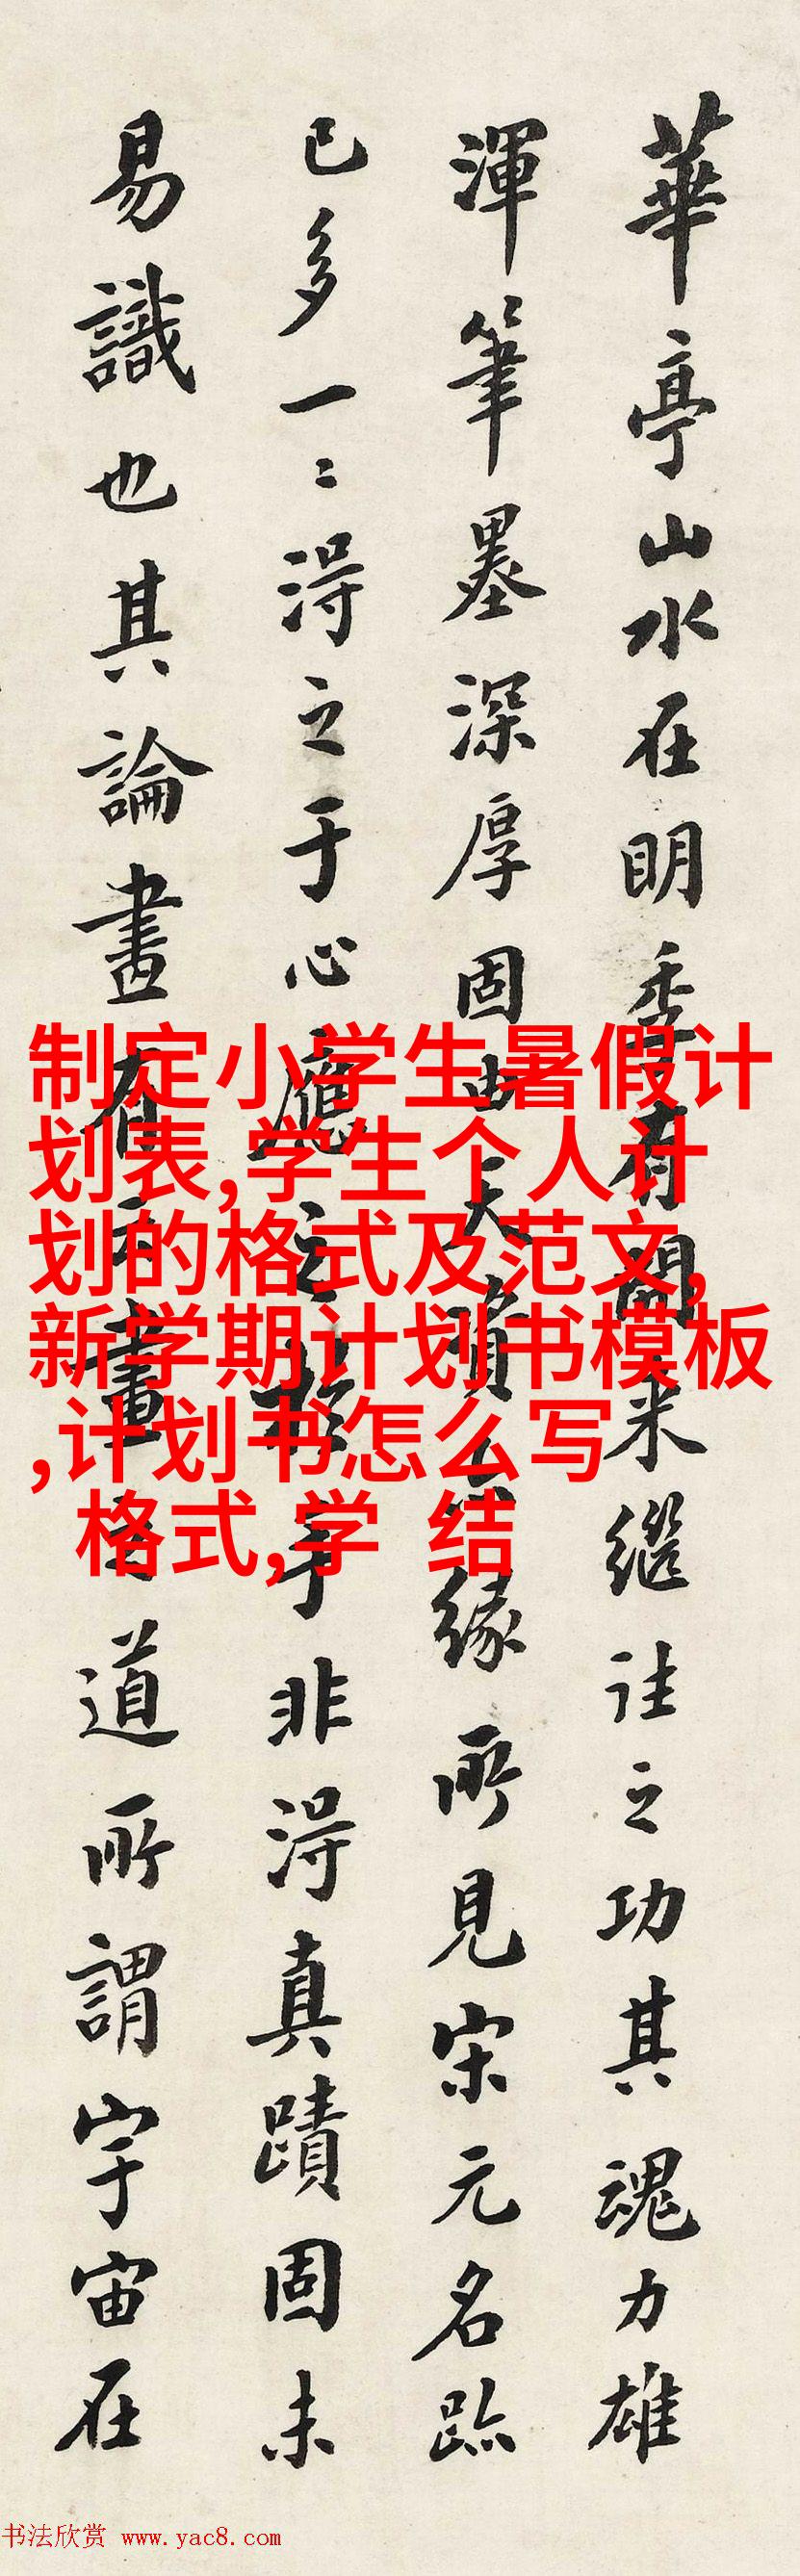 華亭山水在明季有開来継往之功其魂力雄
渾筆墨深厚固由天資緣所見宋元名跡
已多一〻得之于心應之於手非得真蹟固未
易識也其論畫有云畫道所謂宇宙在
制定小学生暑假计
划表,学生个人计
划的格式及范文,
新学期计划书模板
,计划书怎么写
格式,学 结
书法欣赏 www.yac8.com